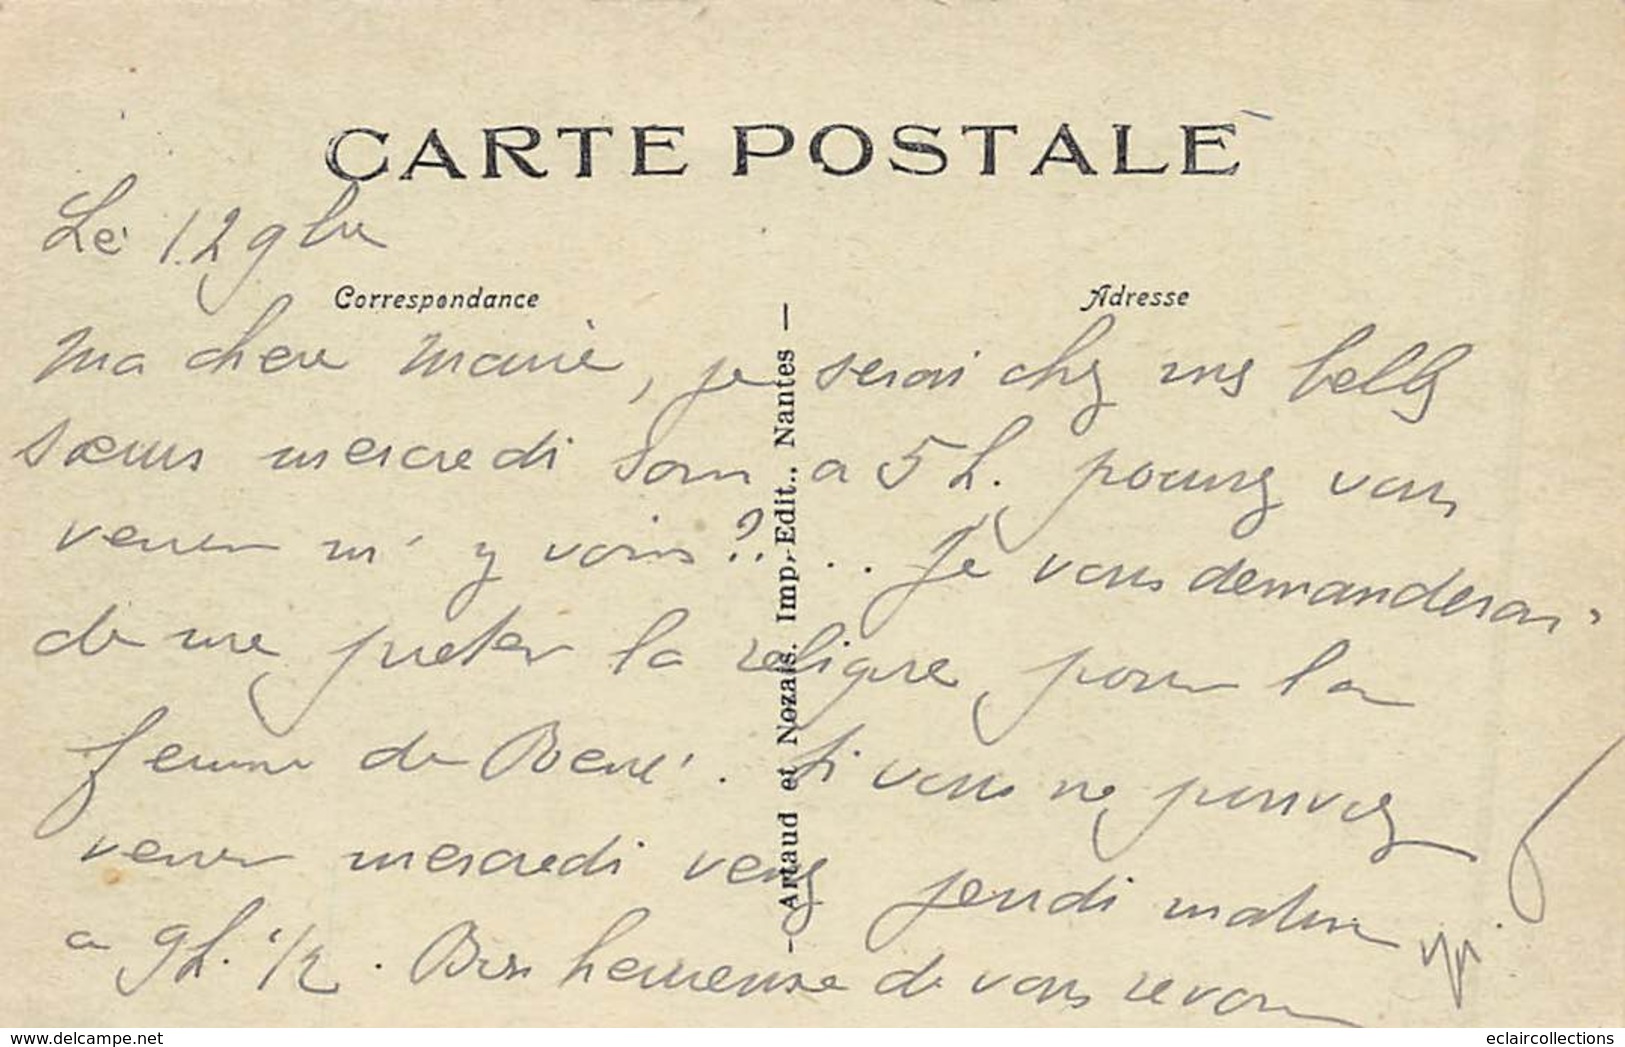 CARTE POSTALE
Le 12 9bre
Correspondance
Adresse
Ma chere Marie, je serai chez mes belles
sœurs mercredi soir a 5 h. pourrez vous
venir m'y voir ?... Je vous demanderai
de me preter la religue pour la
femme de René. Si vous ne pouvez
venir mercredi venez jeudi matin
a 9h. 1/2. Bien heureuse de vous revoir
- Artaud et Nozais. Imp.-Edit.. Nantes -
www.delcampe.net
eclaircollections